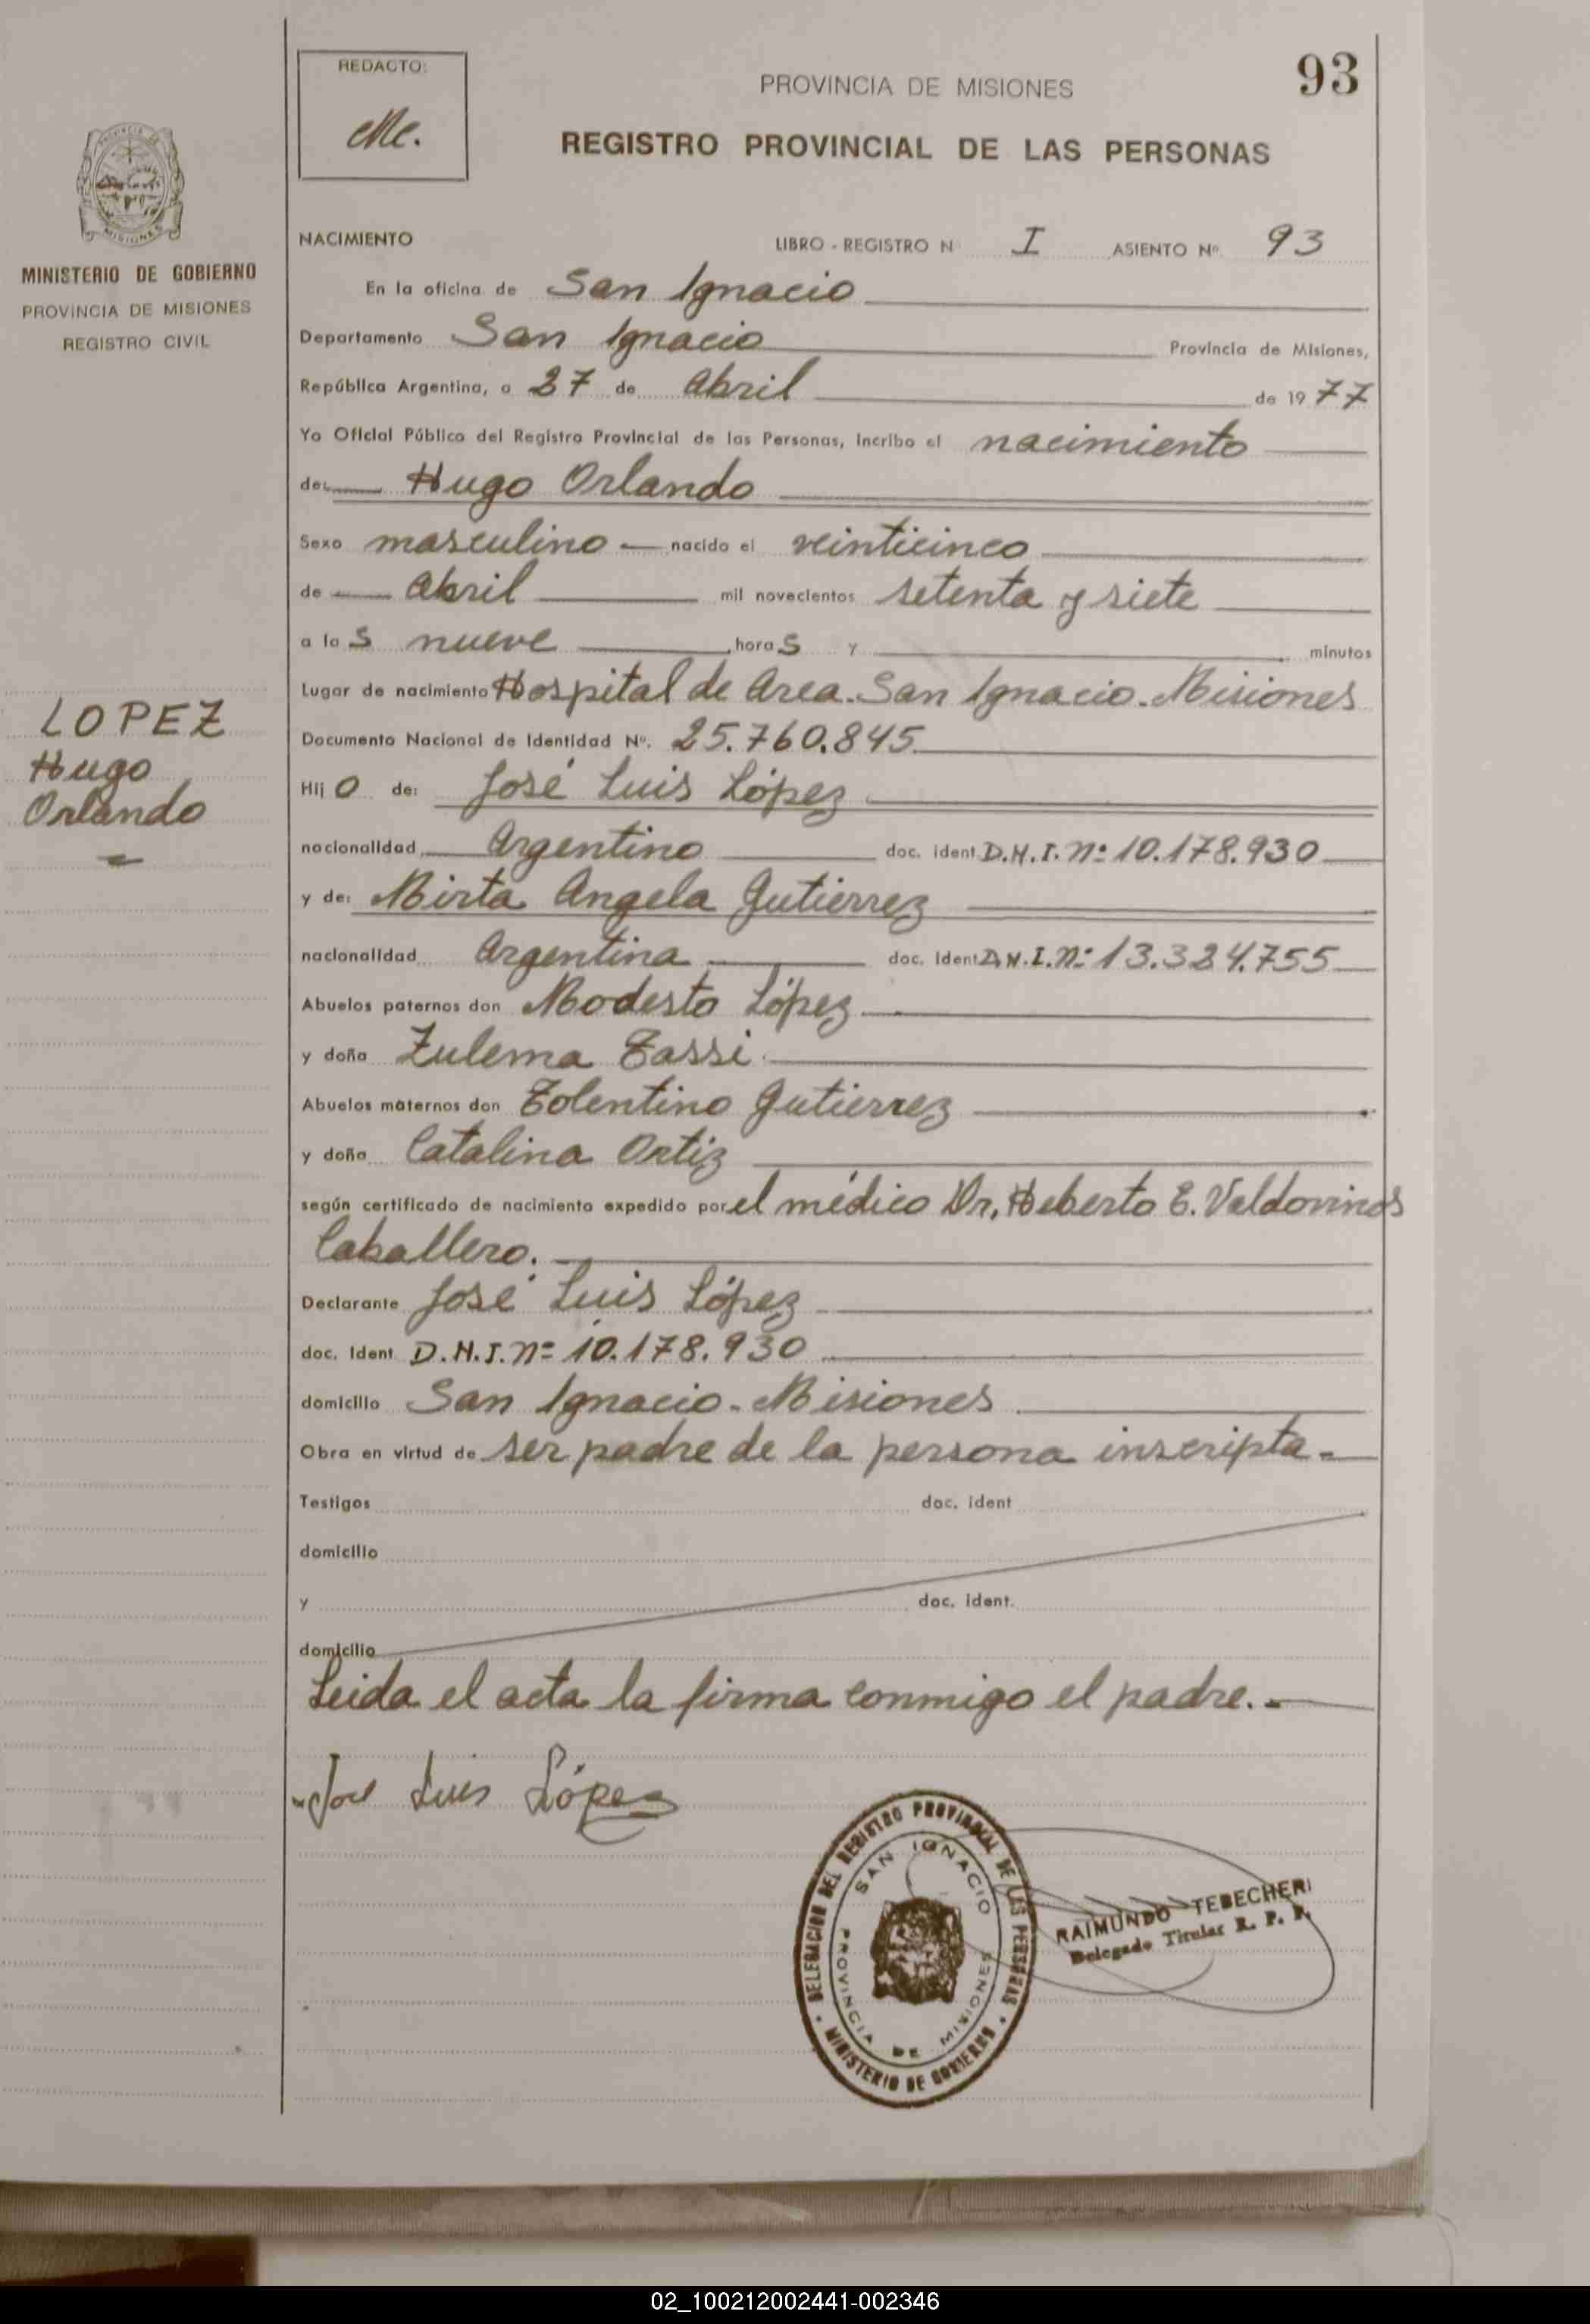 93
REDACTO:
Mc.
PROVINCIA DE MISIONES
REGISTRO PROVINCIAL DE LAS PERSONAS
PROVINCIA DE
MISIONES
MINISTERIO DE GOBIERNO
PROVINCIA DE MISIONES
REGISTRO CIVIL
LOPEZ
Hugo
Orlando
NACIMIENTO LIBRO - REGISTRO N I ASIENTO Nº 93
En la oficina de San Ignacio
Departamento San Ignacio Provincia de Misiones,
República Argentina, a 27 de Abril de 1977
Yo Oficial Público del Registro Provincial de las Personas, incribo el nacimiento
de: Hugo Orlando
Sexo masculino nacido el veinticinco
de Abril mil novecientos setenta y siete
a las nueve horas y minutos
Lugar de nacimiento Hospital de Area. San Ignacio. Misiones
Documento Nacional de Identidad Nº. 25.760.845
Hijo de: José Luis López
nacionalidad Argentino doc. ident D.N.I. nº 10.178.930
y de: Mirta Angela Gutierrez
nacionalidad Argentina doc. ident D.N.I. nº 13.324.755
Abuelos paternos don Modesto López
y doña Zulema Tassi.
Abuelos maternos don Tolentino Gutierrez
y doña Catalina Ortiz
según certificado de nacimiento expedido por el médico Dr. Heberto E. Valdovinos
Caballero.
Declarante José Luis López
doc. ident D.N.I. nº 10.178.930
domicilio San Ignacio - Misiones
Obra en virtud de ser padre de la persona inscripta.
Testigos doc. ident
domicilio
y doc. ident.
domicilio
Leida el acta la firma conmigo el padre.
José Luis López
DELEGACION DEL REGISTRO PROVINCIAL DE LAS PERSONAS
MINISTERIO DE GOBIERNO
SAN IGNACIO
PROVINCIA DE MISIONES
RAIMUNDO TEBECHERI
Delegado Titular R. P. P.
02_100212002441-002346